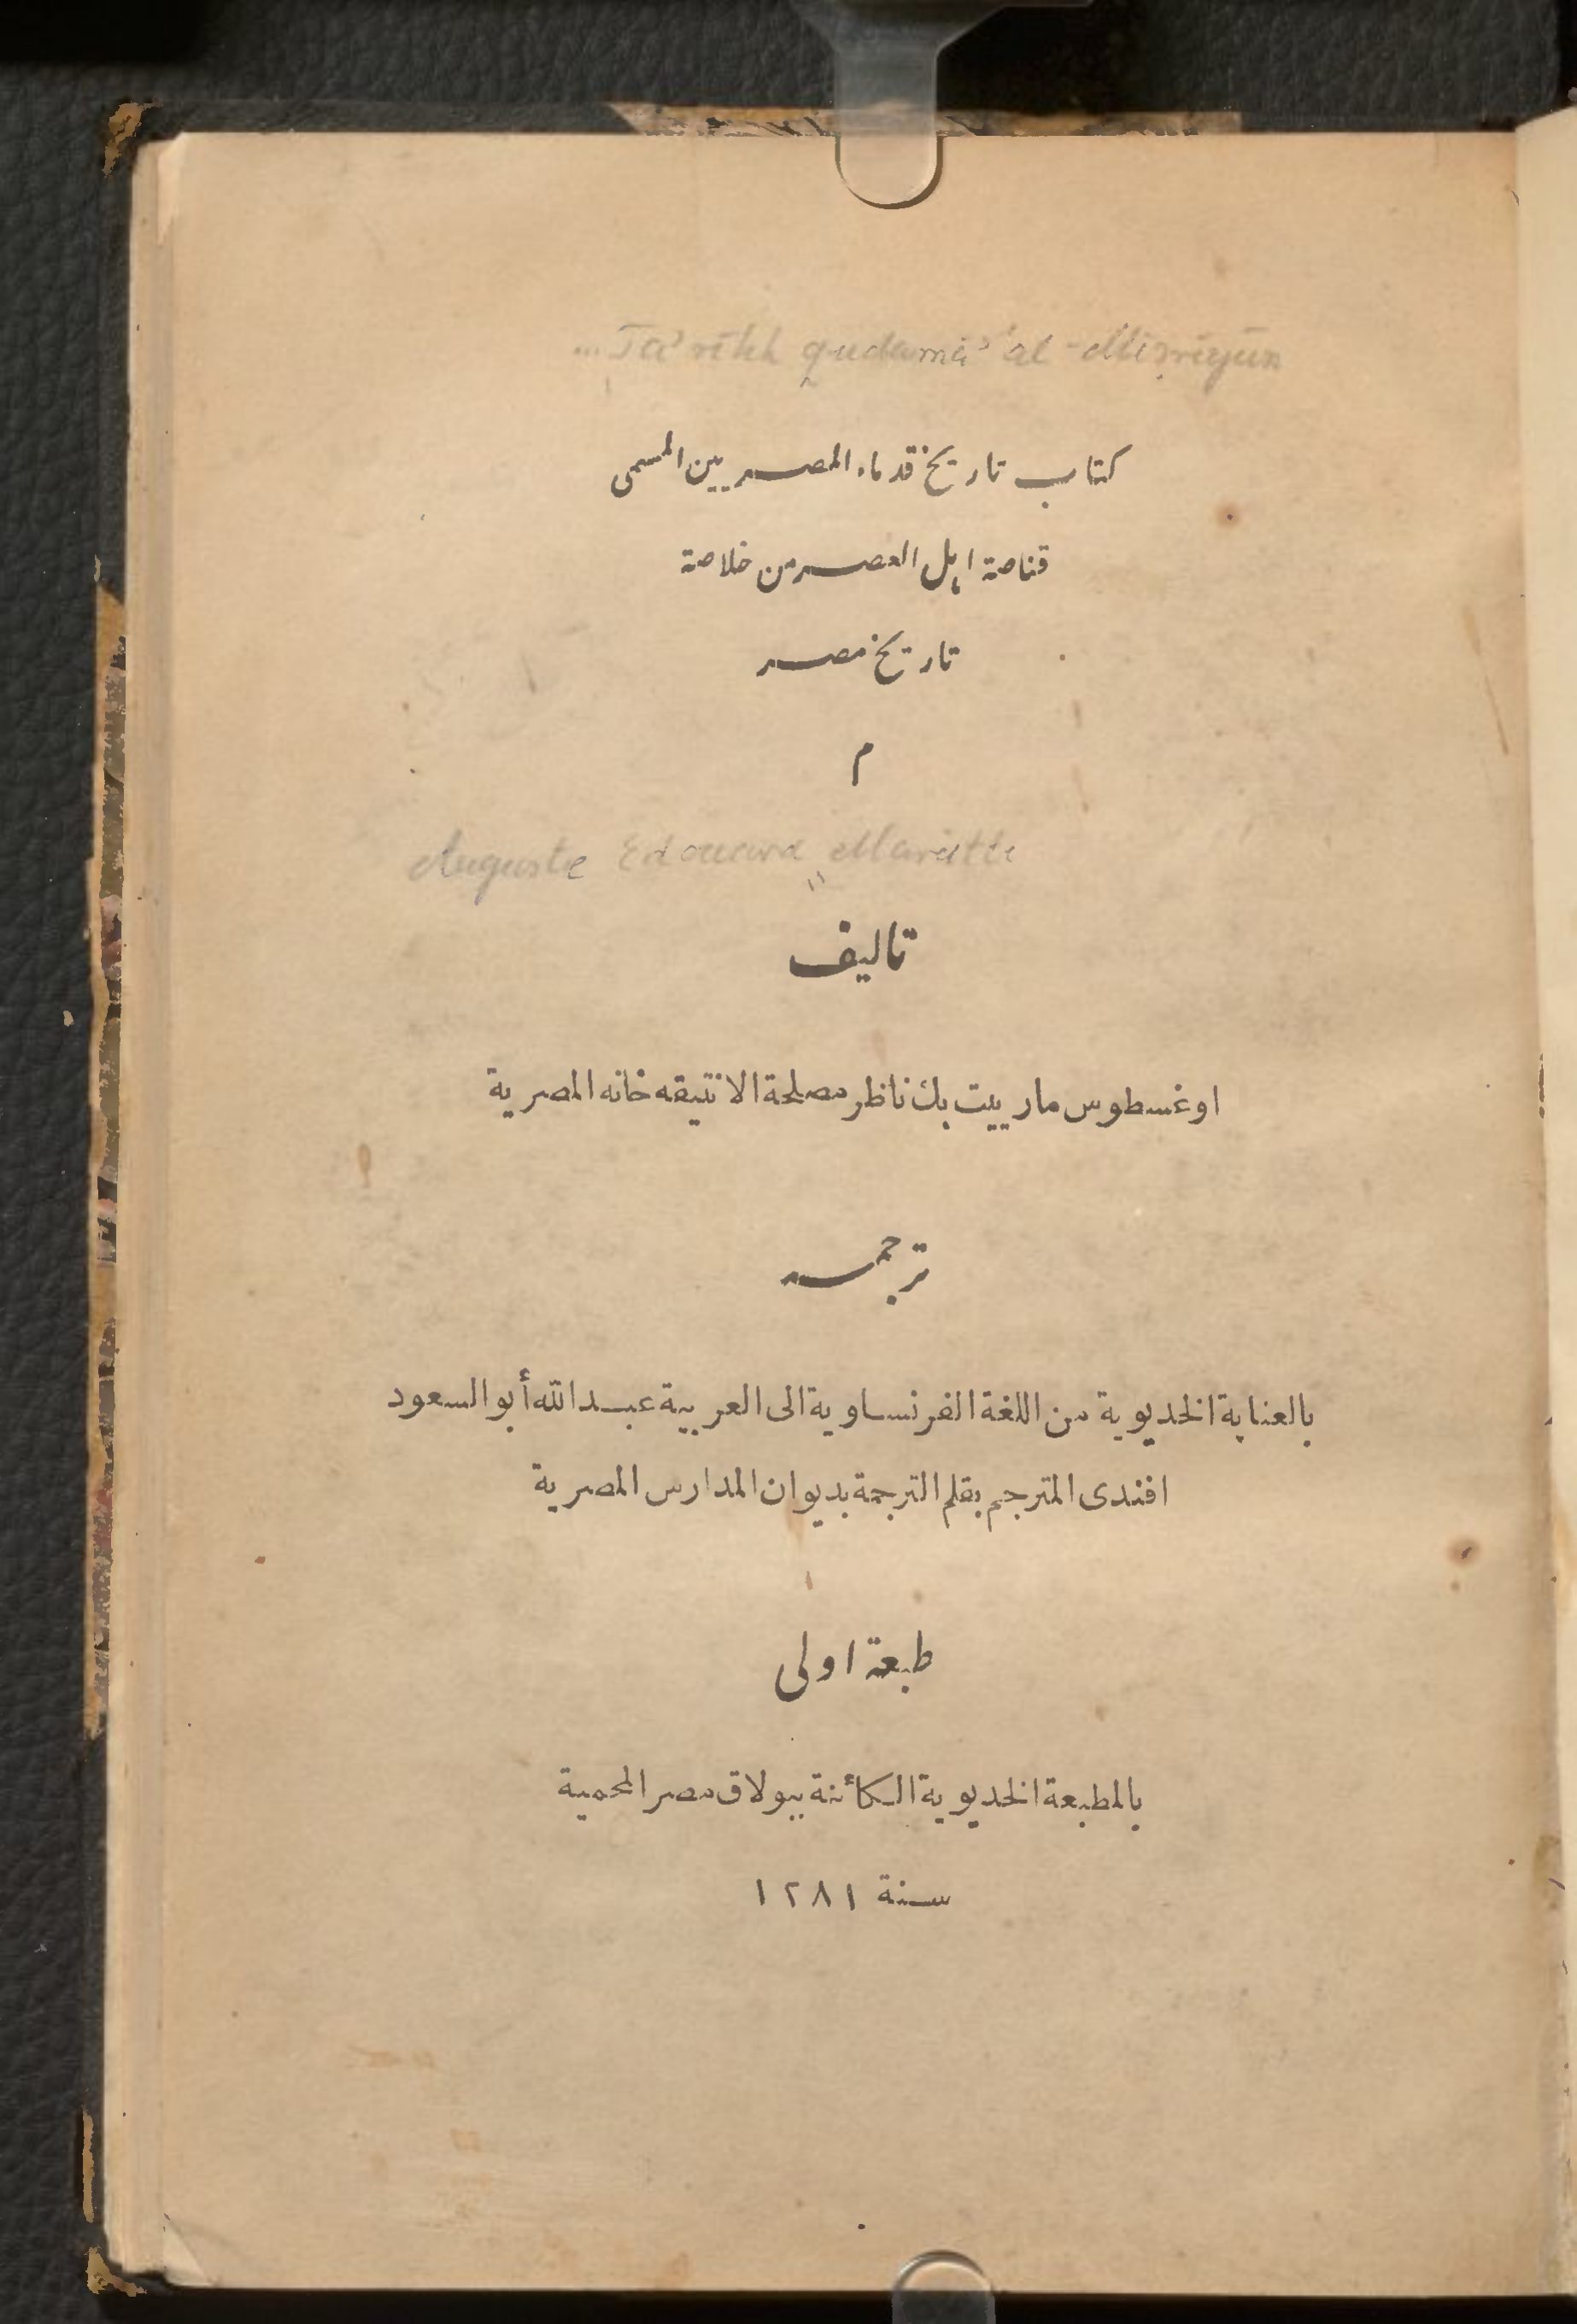 ... Ta'rīkh qudamā' al-Miṣrīyūn
كتاب تاريخ قدماء المصريين المسمى
قناصة اهل العصر من خلاصة
تاريخ مصر
م
Auguste Edouard Mariette
تاليف
اوغسطوس مارييت بك ناظر مصلحة الانتيقه خانه المصرية
ترجمه
بالعناية الخديوية من اللغة الفرنساوية الى العربية عبد الله أبو السعود
افندى المترجم بقلم الترجمة بديوان المدارس المصرية
طبعة اولى
بالمطبعة الخديوية الكائنة ببولاق مصر المحمية
سنة ١٢٨١